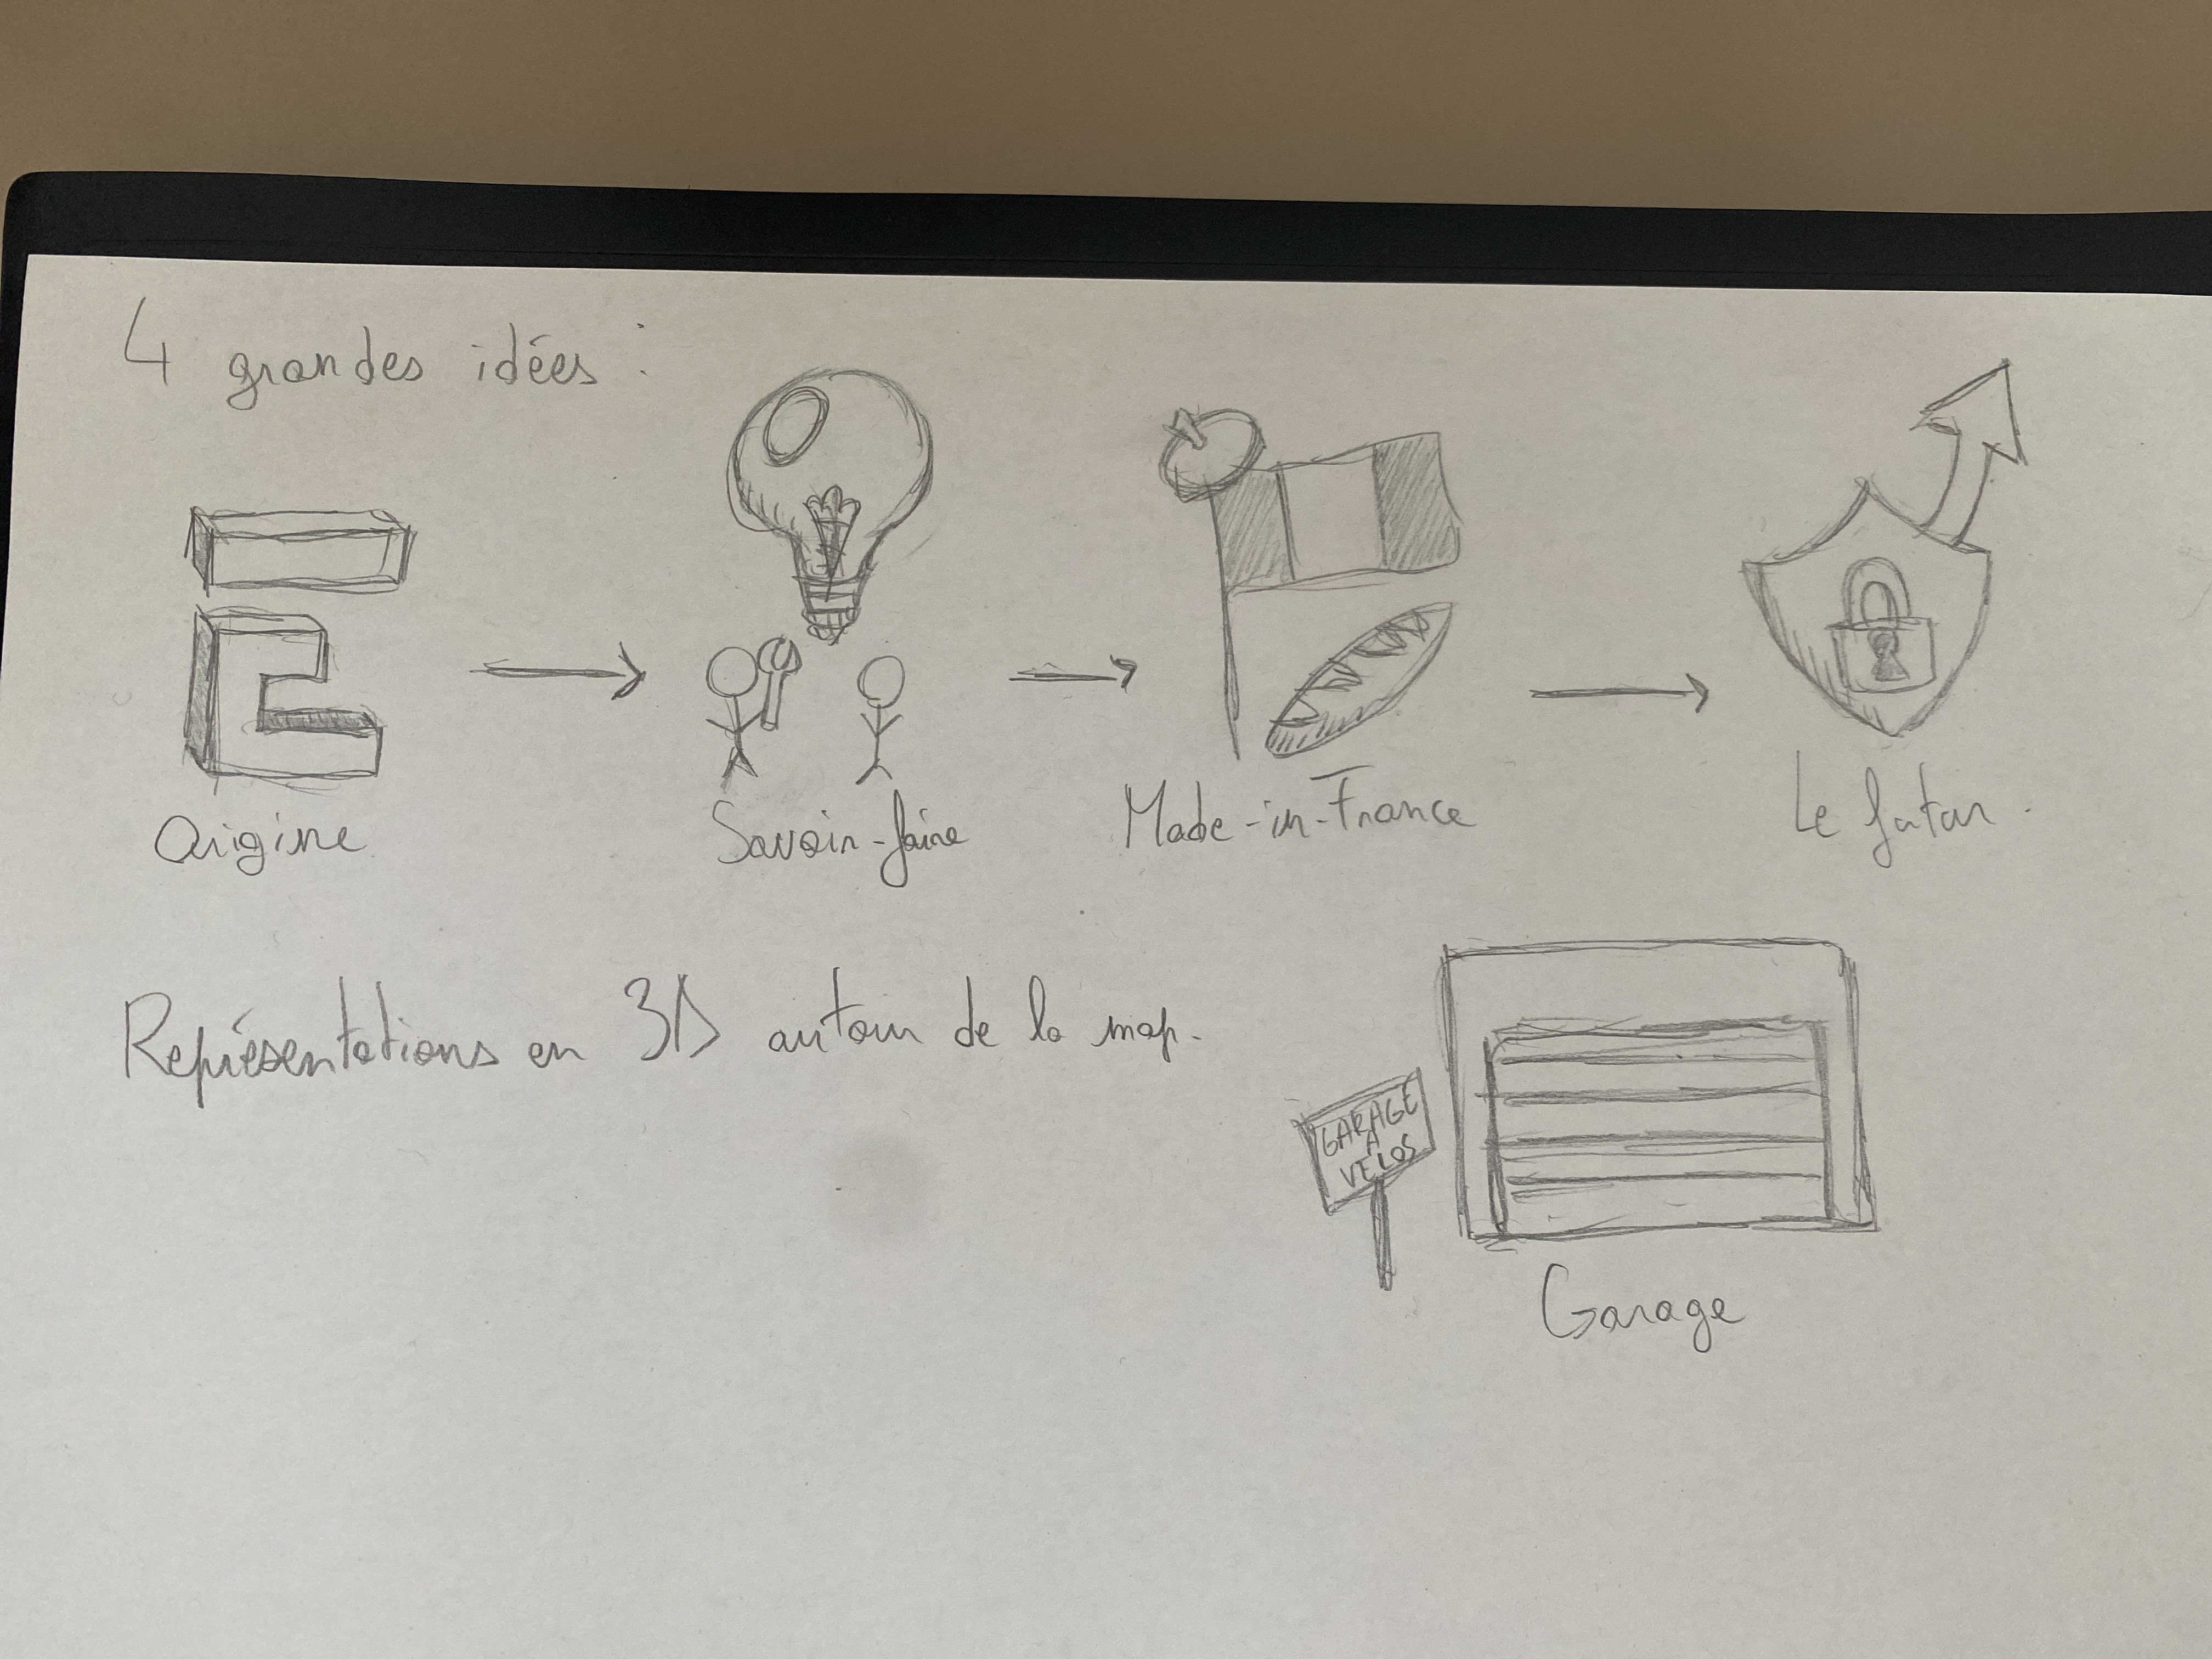 4 grandes idées :
Origine
Savoir-faire
Made-in-France
Le futur.
Représentations en 3D autour de la map.
GARAGE
A
VELOS
Garage